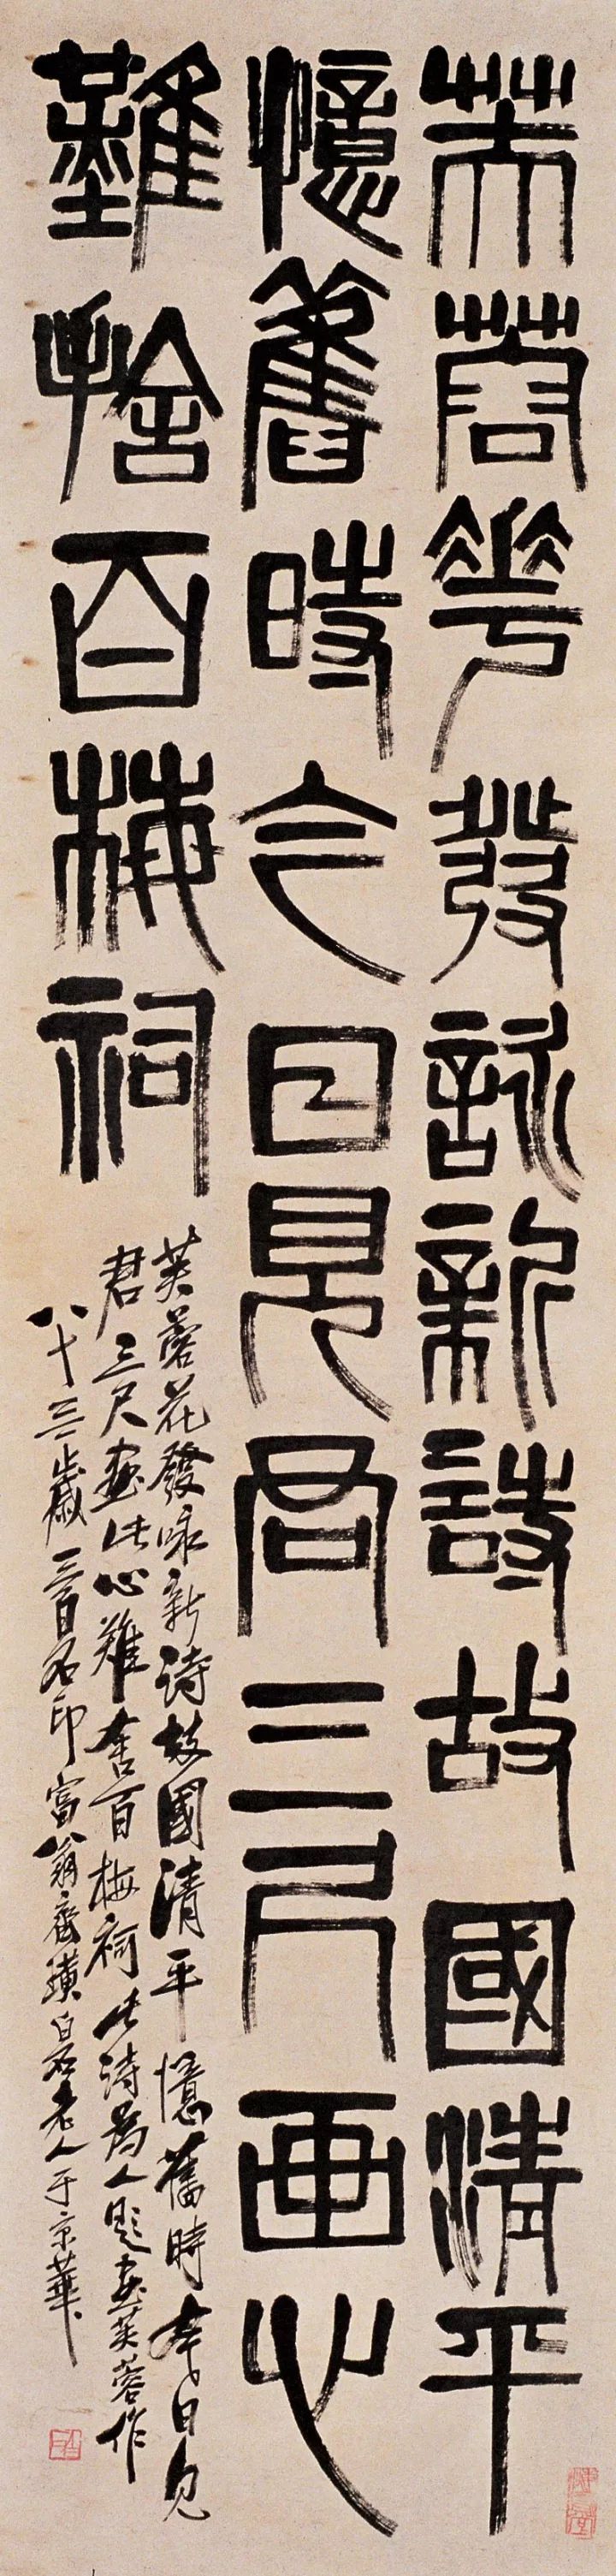 芙蓉花發詠新詩故國清平
憶舊時今日見君三尺画心
難捨百梅祠
芙蓉花發咏新詩故國清平憶舊時今日見
君三尺畫此心難舍百梅祠此詩為人題畫芙蓉作
八十三歲三百石印富翁齊璜白石老人于京華